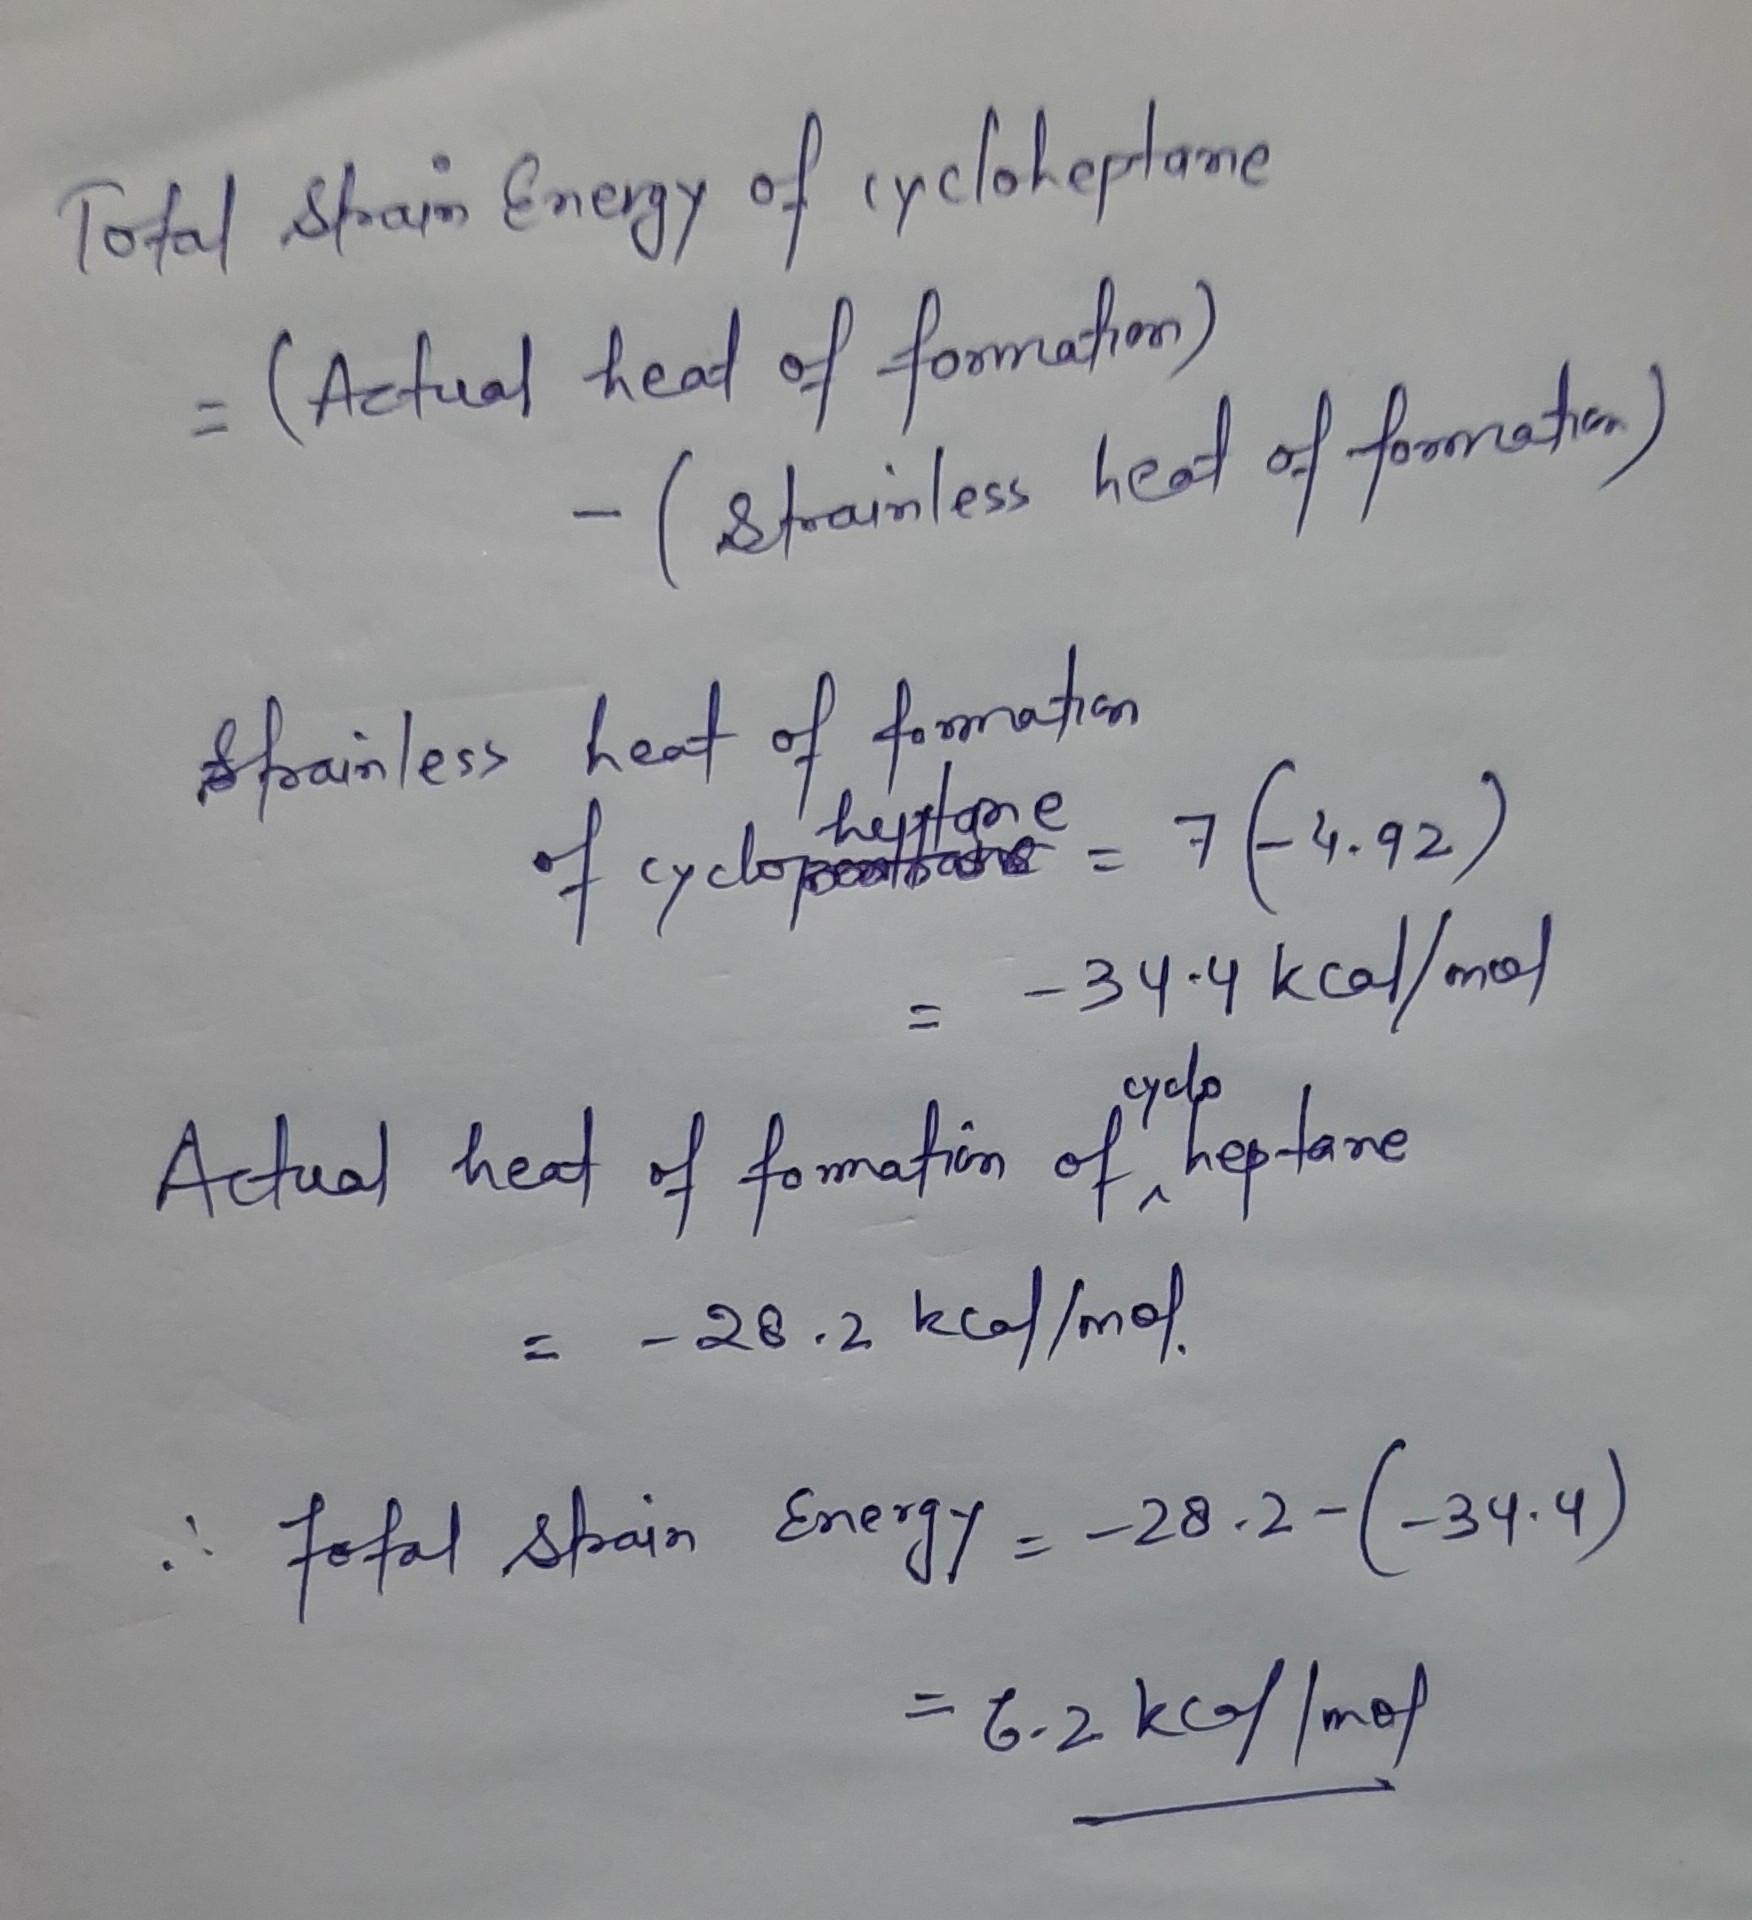 Total Strain Energy of cycloheptane
= (Actual heat of formation)
- (Strainless heat of formation)
Strainless heat of formation
of cycloheptane = 7(-4.92)
= -34.4 kcal/mol
Actual heat of formation of cyclo heptane
= -28.2 kcal/mol.
∴ Total Strain Energy = -28.2-(-34.4)
= 6.2 kcal/mol